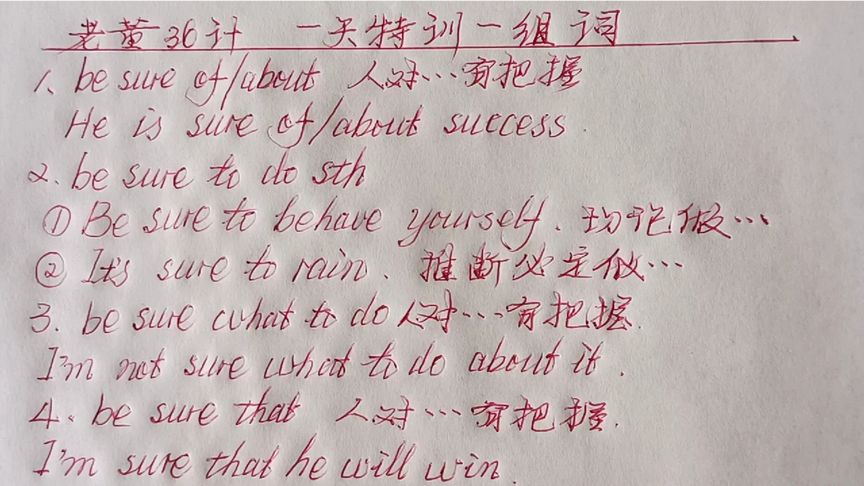 老董36计 一天特训一组词
1、be sure of/about 人对…有把握
He is sure of/about success.
2. be sure to do sth
① Be sure to behave yourself. 切记做…
② It's sure to rain. 推断必定做…
3. be sure what to do 人对…有把握.
I'm not sure what to do about it.
4. be sure that 人对…有把握.
I'm sure that he will win.